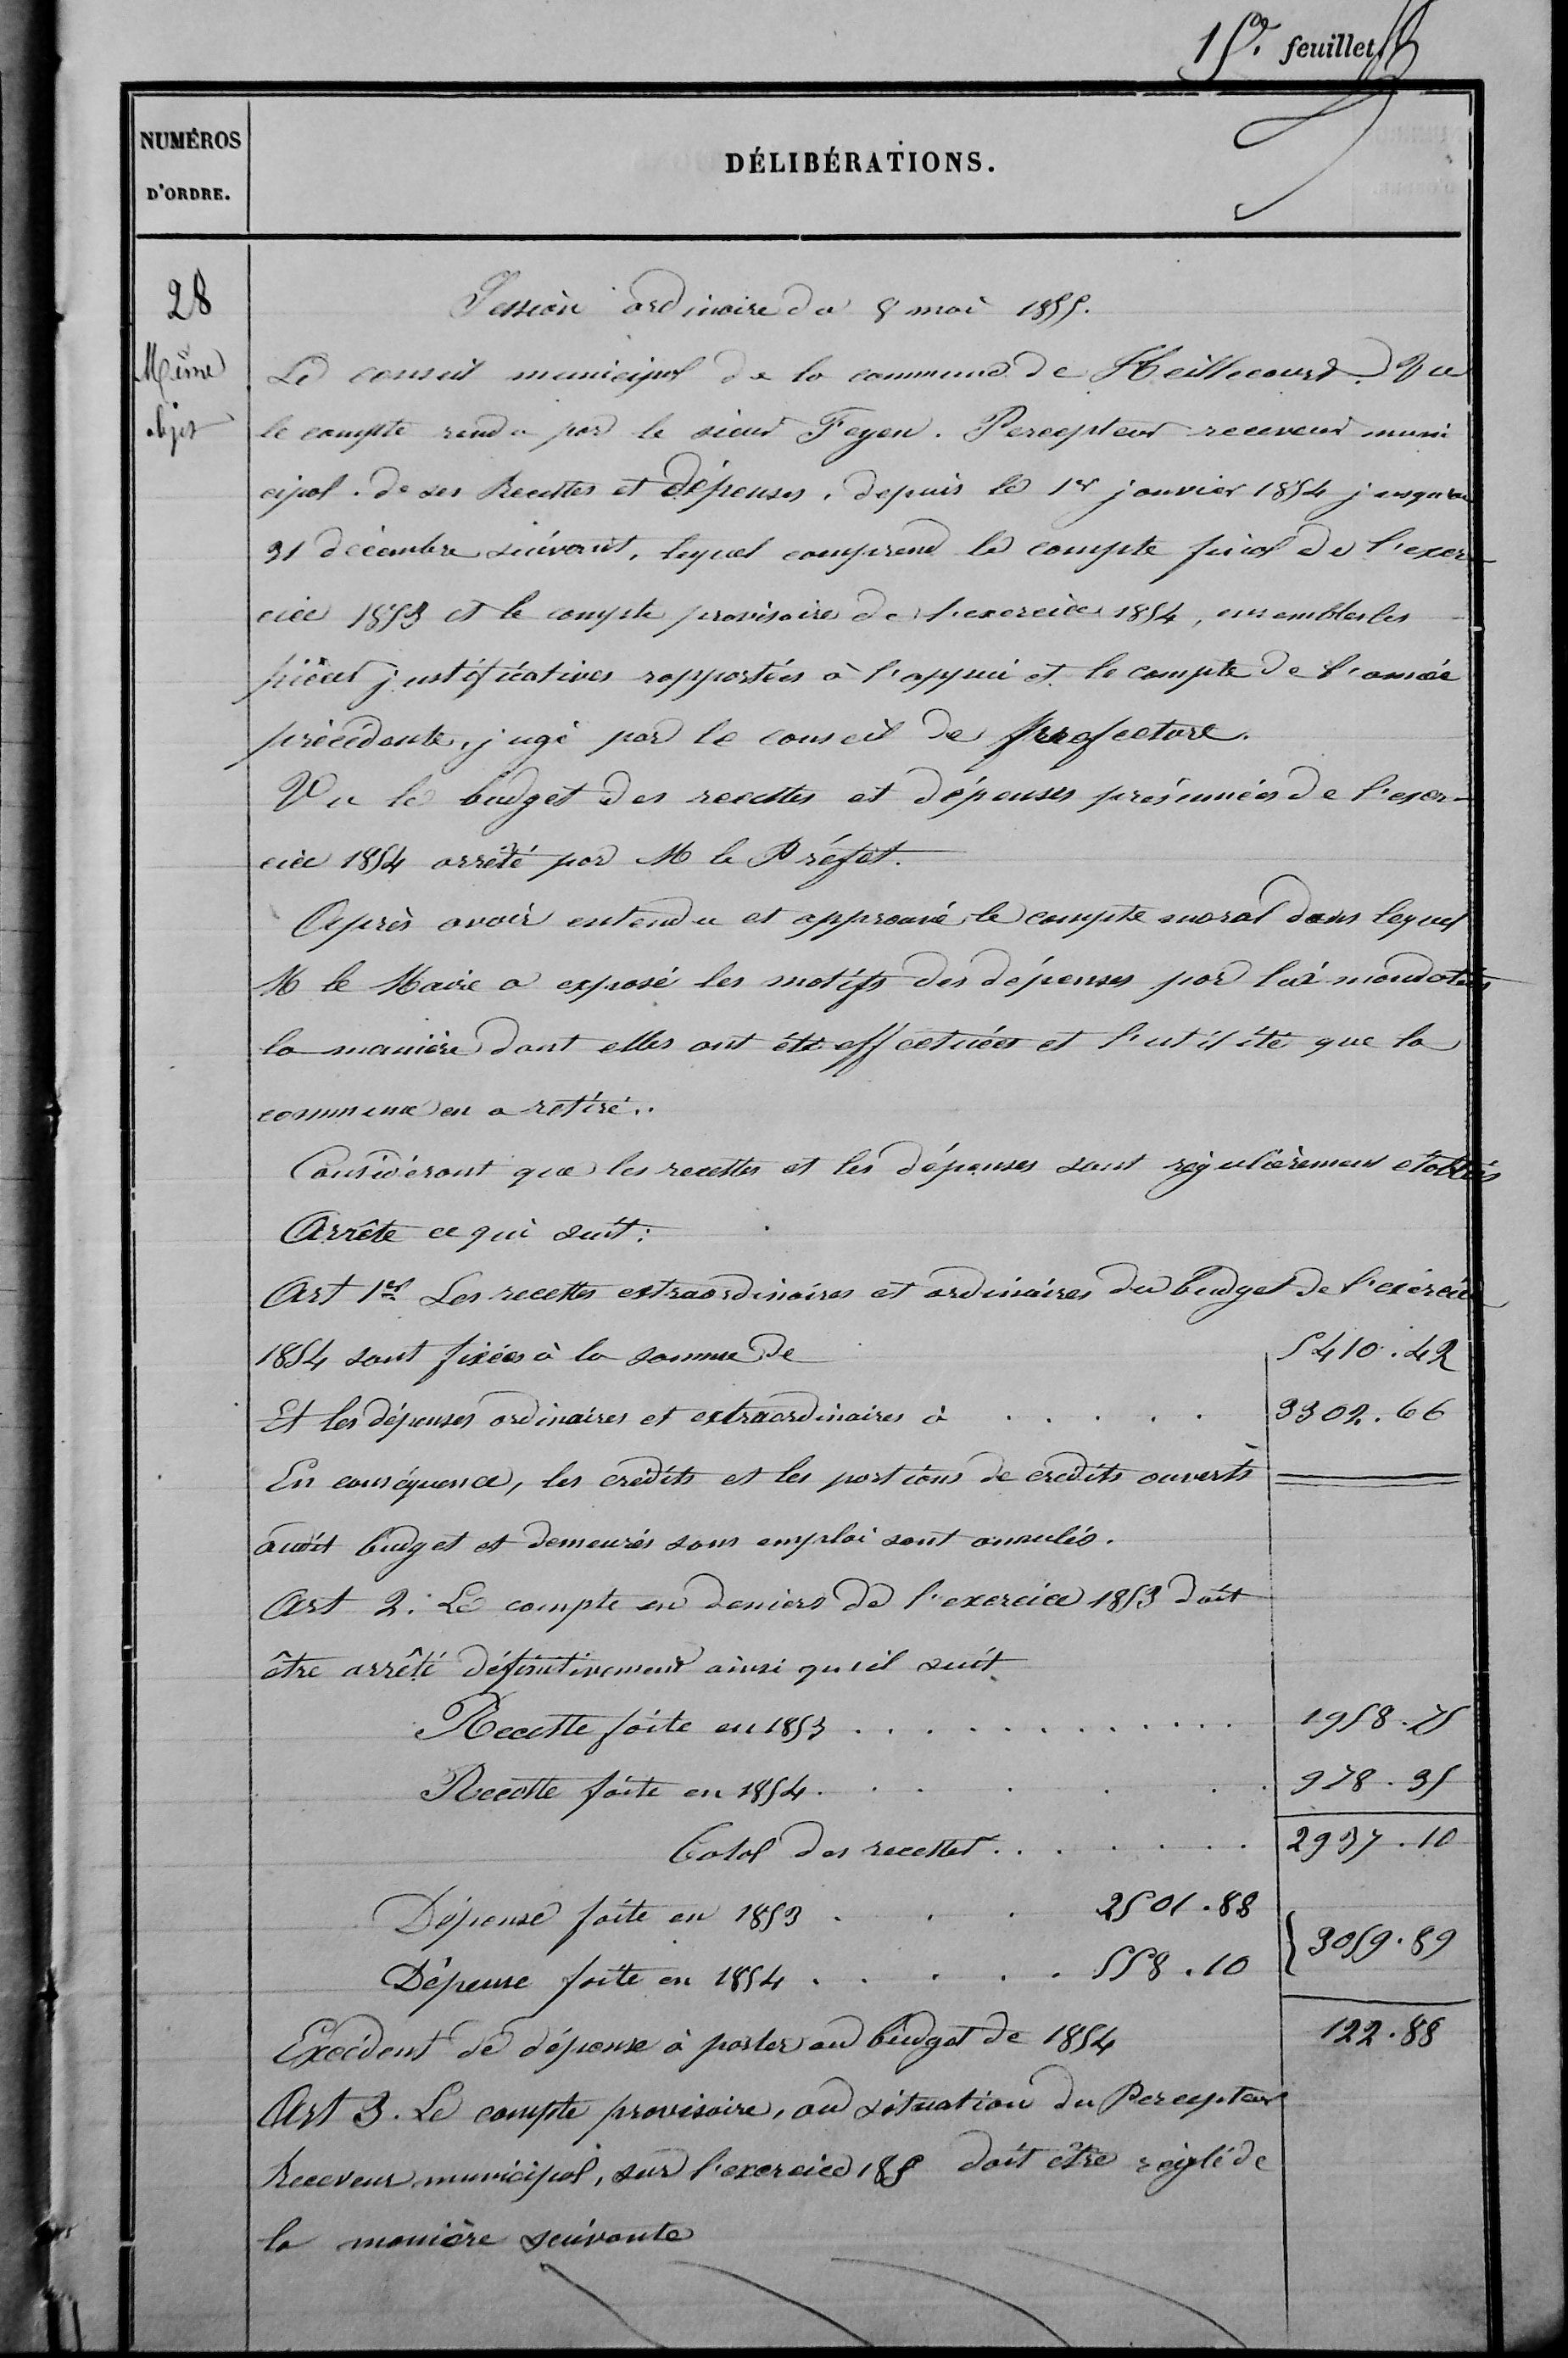 15e. feuillet
NUMÉROS
D'ORDRE.
DÉLIBÉRATIONS.
28
Même
objet
Session ordinaire du 8 mai 1855.
Le conseil municipal de la commune de Heillecourt. Vu
le compte rendu par le sieur Feyen. Percepteur receveur muni
cipal. de ses Recettes et dépenses, depuis le 1er janvier 1854 jusqu'au
31 décembre suivant, lequel comprend le compte final de l'exer-
cice 1853 et le compte provisoire de l'exercice 1854, ensembles les
pièces justificatives rapportées à l'appui et le compte de l'année
précédente, jugé par le conseil de prefecture.
Vu le budget des recettes et dépenses présumées de l'exer-
cice 1854 arrêté par M le Préfet.
Après avoir entendu et approuvé le compte moral dans lequel
M le Maire a exposé les motifs des dépenses par lui mandatées
la manière dont elles ont été effectuées et l'utilité que la
commune en a retiré..
Considérant que les recettes et les dépenses sont régulièrement établies
Arrête ce qui suit:
Art 1er Les recettes extraordinaires et ordinaires du budget de l'exercice
1854 sont fixées à la somme de 5410.42
Et les dépenses ordinaires et extraordinaires à . . . . . 3302.66
En conséquence, les crédits et les portions de crédits ouverts
audit budget et demeurés sans emploi sont annulés.
Art 2. Le compte en deniers de l'exercice 1853 doit
être arrêté définitivement ainsi qu'il suit
Recette faite en 1853 . . . . . . . . . . . . 1958.75
Recette faite en 1854 . . . . . . 978.35
Total des recettes . . . . . . 2937.10
Dépense faite en 1853 . . . 2501.88
3059.89
Dépense faite en 1854 . . . . . 558.10
Excédent de dépense à porter au budget de 1854 122.88
Art 3. Le compte provisoire, ou situation du Percepteur
Receveur municipal, sur l'exercice 185 doit être réglé de
la manière suivante